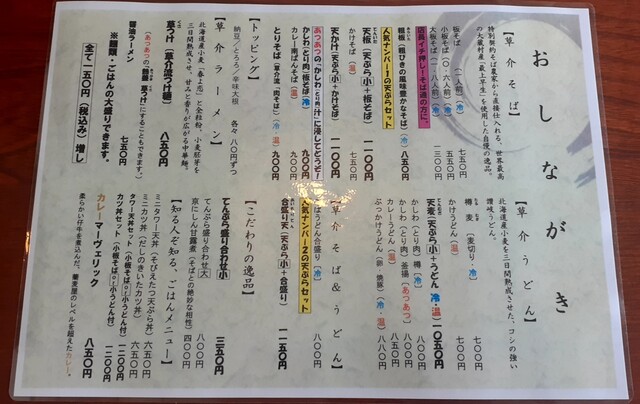 おしながき
【草介そば】
特別契約そば農家から直接仕入れる、世界最高
の大蔵村産「最上早生」を使用した自慢の逸品。
板そば（一人前）（冷） 七五〇
小板そば（〇.六人前）（冷）
大板そば（一.八人前）（冷） 一三〇〇
店員イチ押し！そば通の方に。
粗板（粗びきの風味豊かなそば）（冷）八五〇
人気ナンバー1の天ぷらセット
天板（天ぷら小＋板そば） 一一〇〇
かけそば（温） 七五〇
天かけ（天ぷら小＋かけそば） 一一〇〇
あつあつの「かしわ（とり肉）汁」に浸してどうぞ！
かしわ（とり肉）板そば（冷） 九〇〇
カレー南ばんそば（温） 八〇〇
とりそば（草介流「肉そば」）（冷・温） 九〇〇
【トッピング】
納豆／とろろ／辛味大根 各々 八〇円ずつ
【草介ラーメン】
北海道産小麦「春よ恋」と全粒粉、小麦胚芽を
三日間熟成させた、甘みと香りが広がる中華麺。
草つけ（草介流つけ麺） 八五〇
（あつあつの「熱盛 草つけ」にすることもできます）
醤油ラーメン 七五〇
※麺類・ごはんの大盛りできます。
全て一五〇円（税込み）増し
【草介うどん】
北海道産小麦を三日間熟成させた、コシの強い
讃岐うどん。
樽麦［麦切り・冷］ 七〇〇
かけうどん（温） 七〇〇
天麦（天ぷら小＋うどん 冷・温）一〇五〇
かしわ（とり肉）樽（冷） 八〇〇
かしわ（とり肉）釜揚［あつあつ］ 八五〇
カレーうどん（温） 八〇〇
ぶっかけうどん（卵・焼豚）（冷・温） 八八〇
【草介そば＆うどん】
そばうどん合盛り（冷） 八〇〇
人気ナンバー2の天ぷらセット
合盛り天（天ぷら小＋合盛り） 一一五〇
【こだわりの逸品】
てんぷら盛り合わせ小 三五〇
てんぷら盛り合わせ大 八〇〇
京にしん甘露煮（そばとの絶妙な相性） 四〇〇
【知る人ぞ知る、ごはんメニュー】
ミニタワー天丼（そびえたつ天ぷら丼）六五〇
ミニカツ丼（だしのきいたカツ丼） 六五〇
タワー天丼セット（小板そばor小うどん付）一二〇〇
カツ丼セット（小板そばor小うどん付）一二〇〇
カレーマーヴェリック 八五〇
柔らかい仔牛を煮込んだ、蕎麦屋のレベルを超えたカレー。